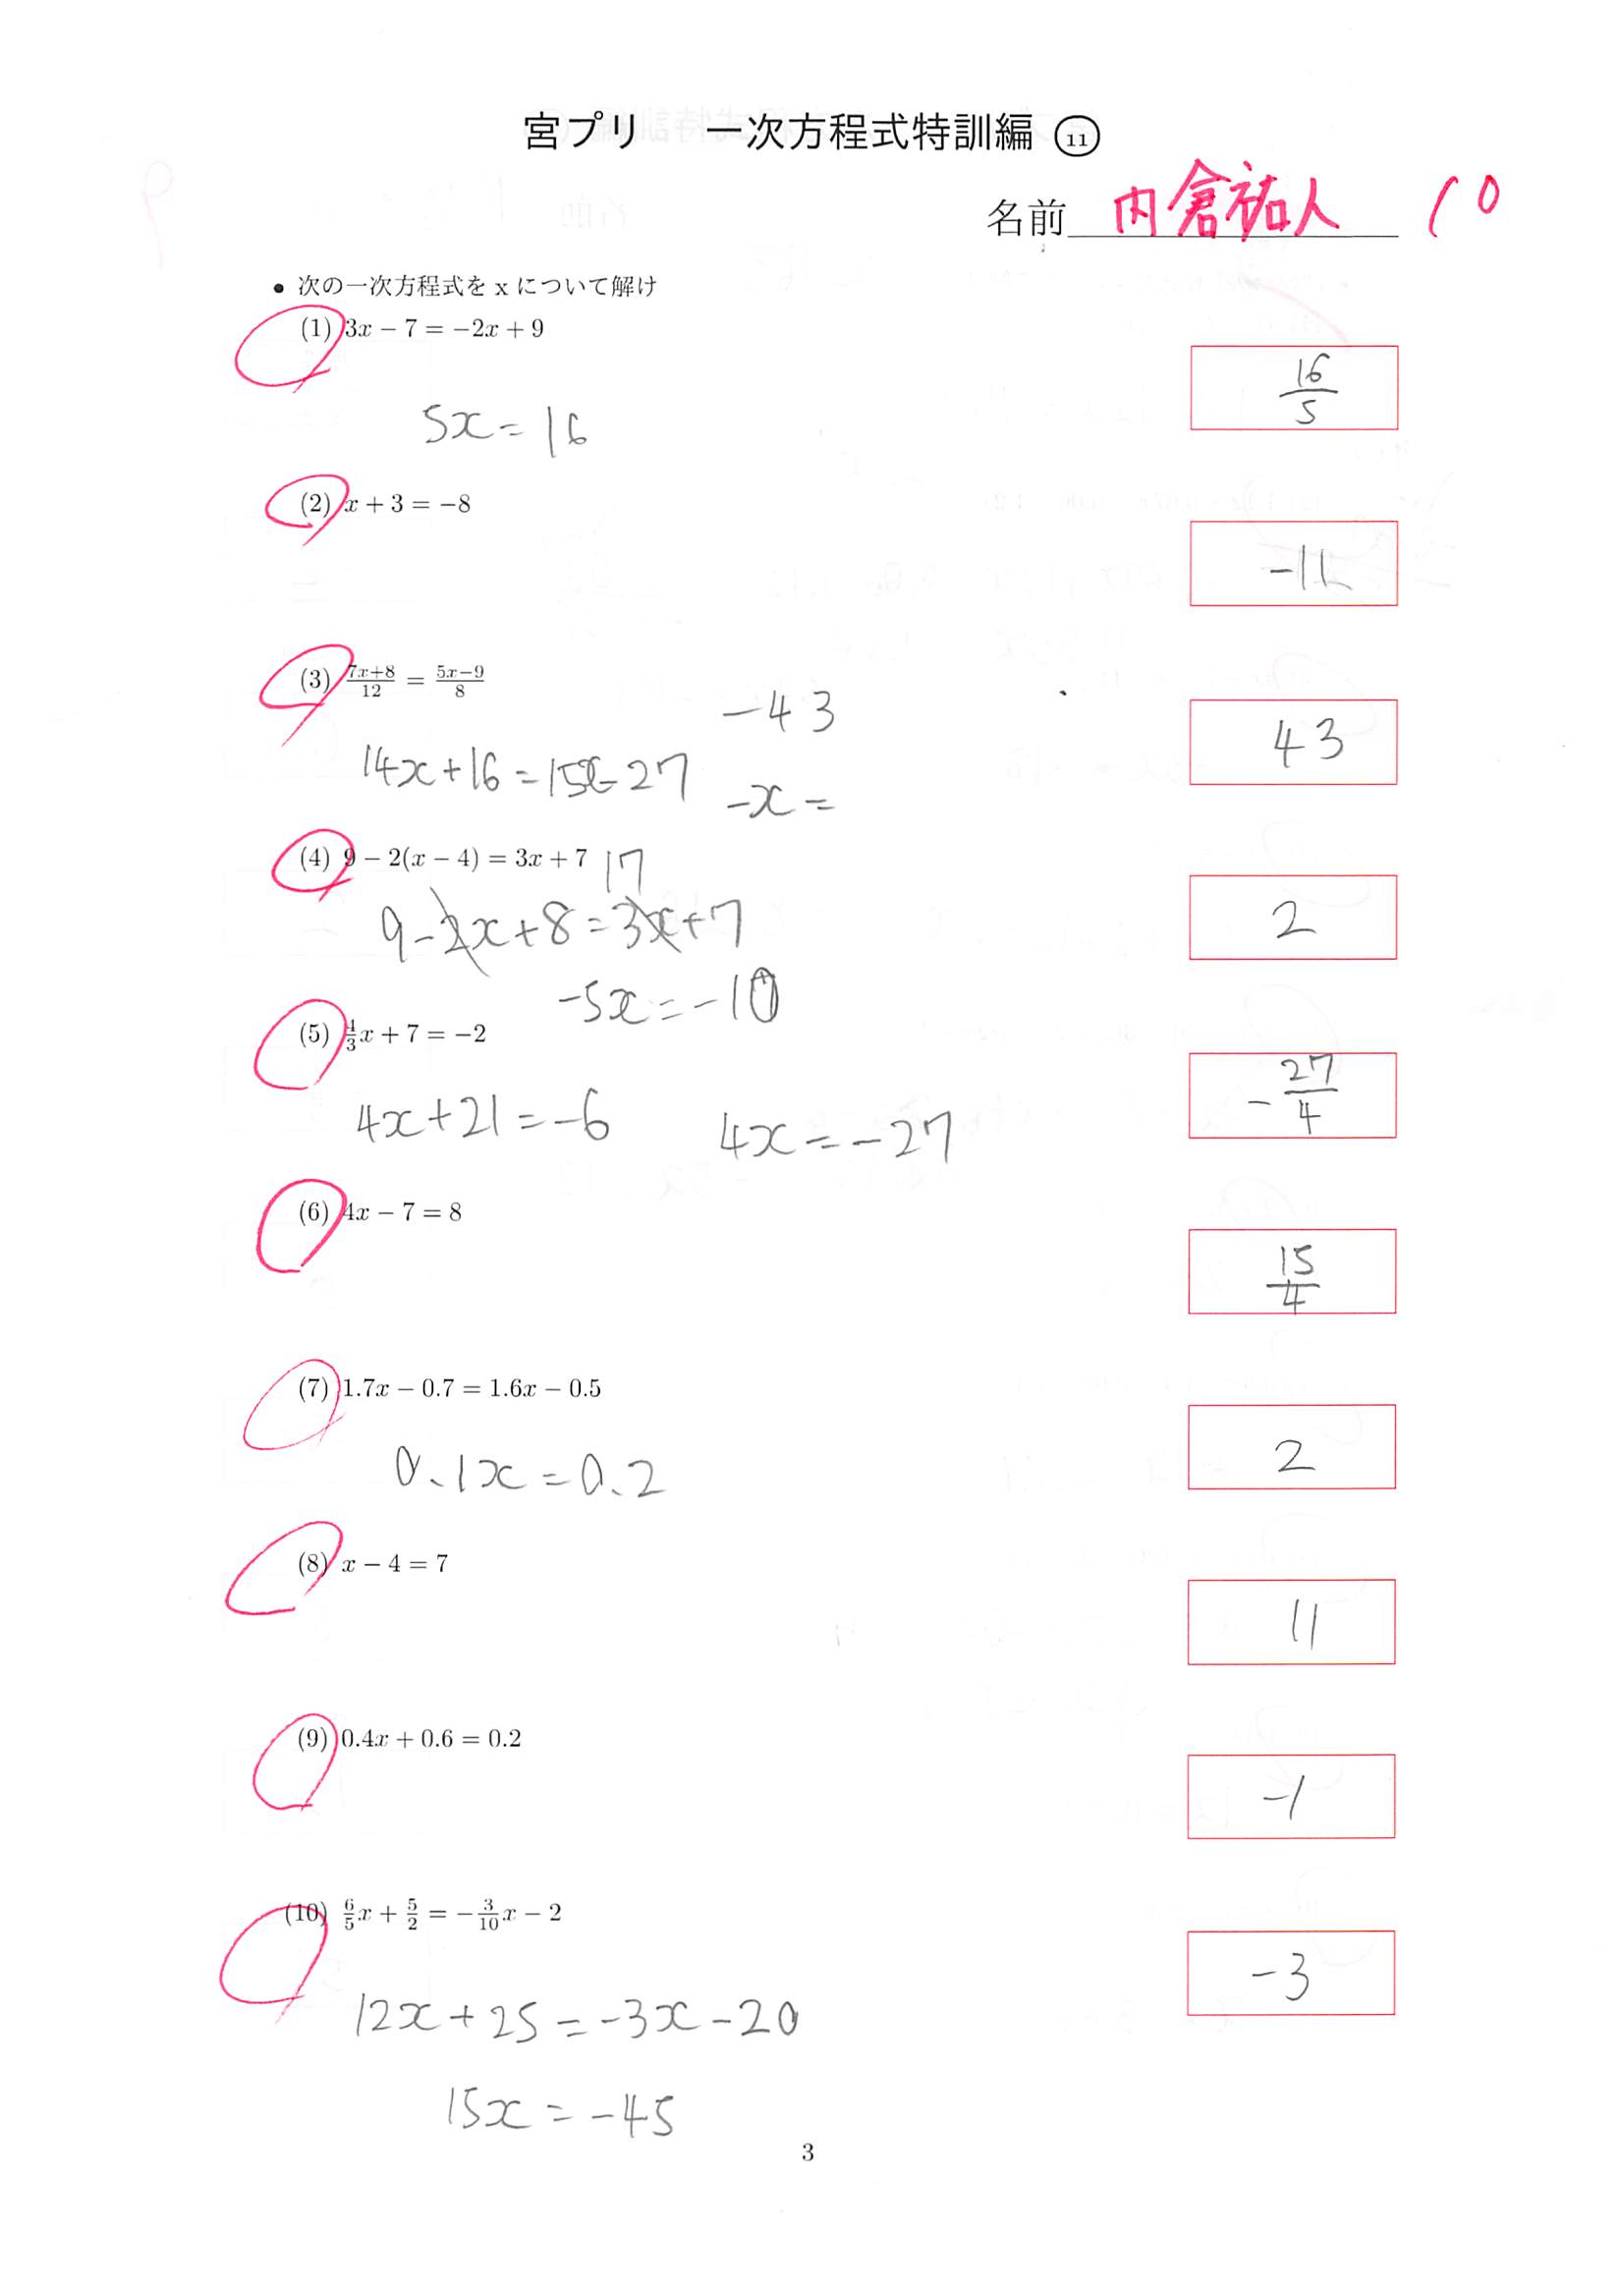 宮プリ 一次方程式特訓編 ⑪
名前 内倉祐人 10
• 次の一次方程式を x について解け
(1) 3x − 7 = −2x + 9
5x = 16
16/5
(2) x + 3 = −8
−11
(3) (7x+8)/12 = (5x−9)/8
14x + 16 = 15x − 27
−43
−x =
43
(4) 9 − 2(x − 4) = 3x + 7
17
9 − 2x + 8 = 3x + 7
−5x = −10
2
(5) 4/3 x + 7 = −2
4x + 21 = −6 4x = −27
−27/4
(6) 4x − 7 = 8
15/4
(7) 1.7x − 0.7 = 1.6x − 0.5
0.1x = 0.2
2
(8) x − 4 = 7
11
(9) 0.4x + 0.6 = 0.2
−1
(10) 6/5 x + 5/2 = −3/10 x − 2
12x + 25 = −3x − 20
15x = −45
−3
3